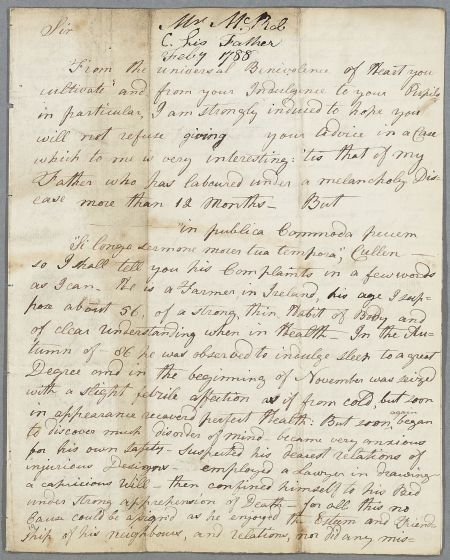 Sir
Mr McRob
C. his Father
Feby 1788
From the universal Benivolence of Heart you
cultivate and from your Indulgence to your Pupils
in particular, I am strongly induced to hope you
will not refuse giving your advice in a Case
which to me is very interesting: 'tis that of my
Father who has laboured under a melancholy Dis-
ease more than 12 Months - But
in publica Commoda pecem
"Si longo sermone morer tua tempora", Cullen -
so I shall tell you his Complaints in a few words
as I can - He is a Farmer in Ireland, his age I sup-
pose about 56, of a strong, thin Habit of Body and
of clear understanding when in Health - In the Au-
tumn of - 86 he was observed to indulge sleep to a great
Degree and in the beginning of November was seized
with a slight febrile affection as if from cold, but soon
in appearance recoverd perfect Health: But soon again began
to discover much disorder of mind - became very anxious
for his own safety - suspected his nearest relations of
injurious Designs - employed a Lawyer in drawing
a capricious will - then confined himself to his Bed
under strong apprehension of Death - for all this no
Cause could be assigned as he enjoyed the Esteem and Friend-
ship of his neighbours, and relations, nor did any mis-